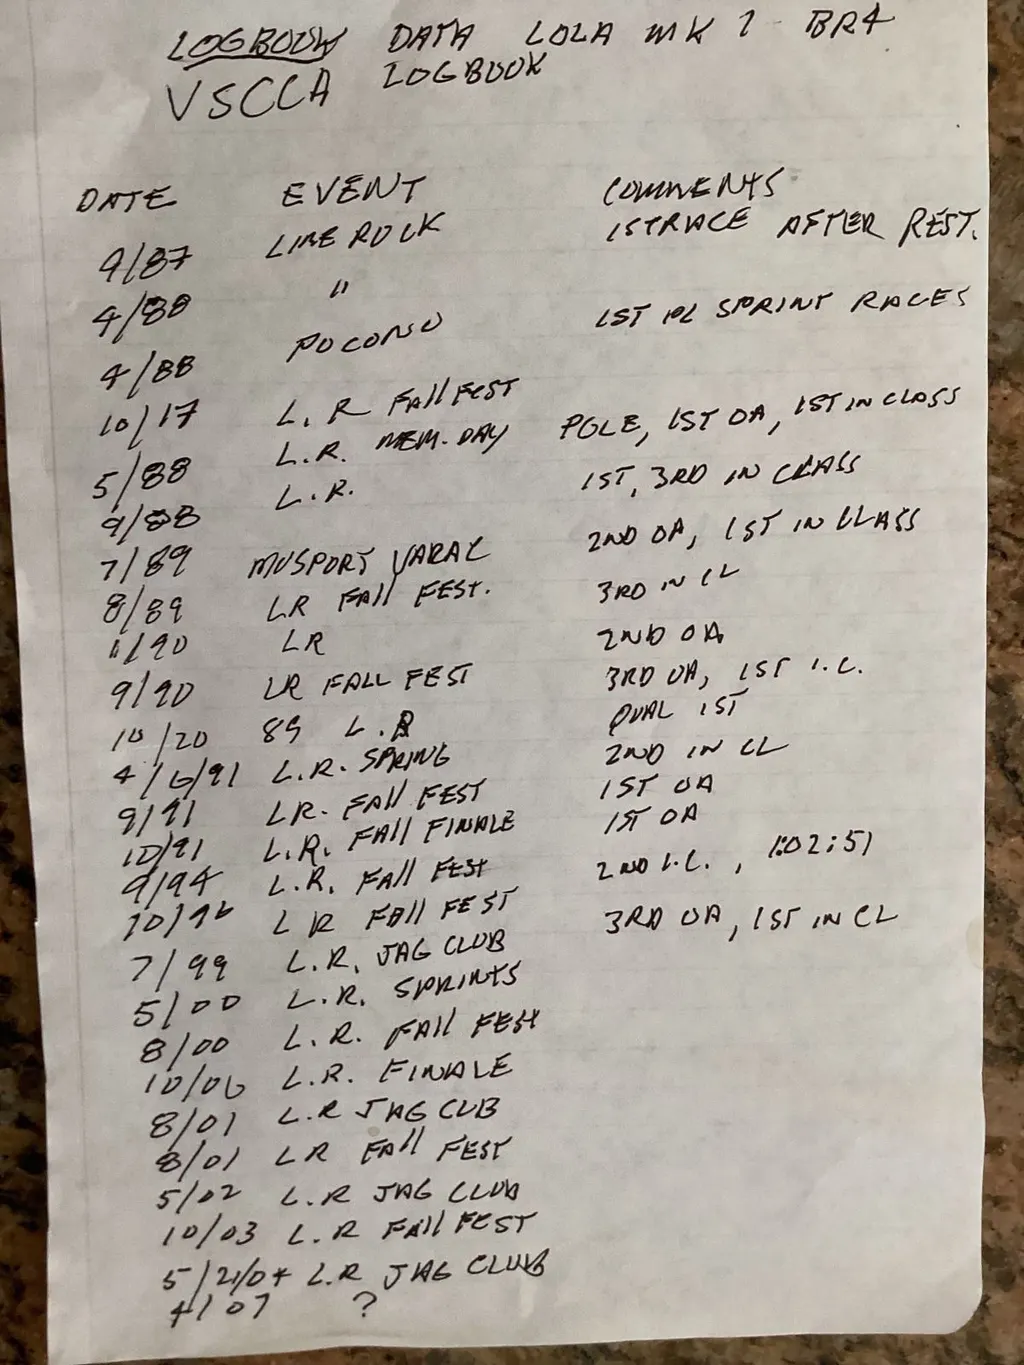 LOGBOOK DATA LOLA MK 1 BR4
VSCCA LOGBOOK
DATE EVENT COMMENTS
9/87 LIME ROCK 1ST RACE AFTER REST.
4/88 "
4/88 POCONO 1ST PL SPRINT RACES
10/17 L. R FAll FEST
5/88 L.R. MEM. DAY POLE, 1ST OA, 1ST IN CLASS
9/88 L.R. 1ST, 3RD IN CLASS
7/89 MOSPORT VARAC 2ND OA, 1ST IN CLASS
8/89 LR FAll FEST. 3RD IN CL
11/90 LR 2ND OA
9/90 LR FALL FEST 3RD OA, 1ST I.C.
10/20 89 L.R QUAL 1ST
4/6/91 L.R. SPRING 2ND IN CL
9/91 LR. FAll FEST 1ST OA
10/91 L.R. FAll FINALE 1ST OA
9/94 L.R. FAll FEST 2ND I.C., 1:02:51
10/96 L R FAll FEST 3RD OA, 1ST IN CL
7/99 L.R. JAG CLUB
5/00 L.R. SPRINTS
8/00 L.R. FAll FEST
10/00 L.R. FINALE
8/01 L.R JAG CUB
8/01 LR FAll FEST
5/02 L.R JAG CLUB
10/03 L.R FAll FEST
5/21/04 L.R JAG CLUB
4/07 ?